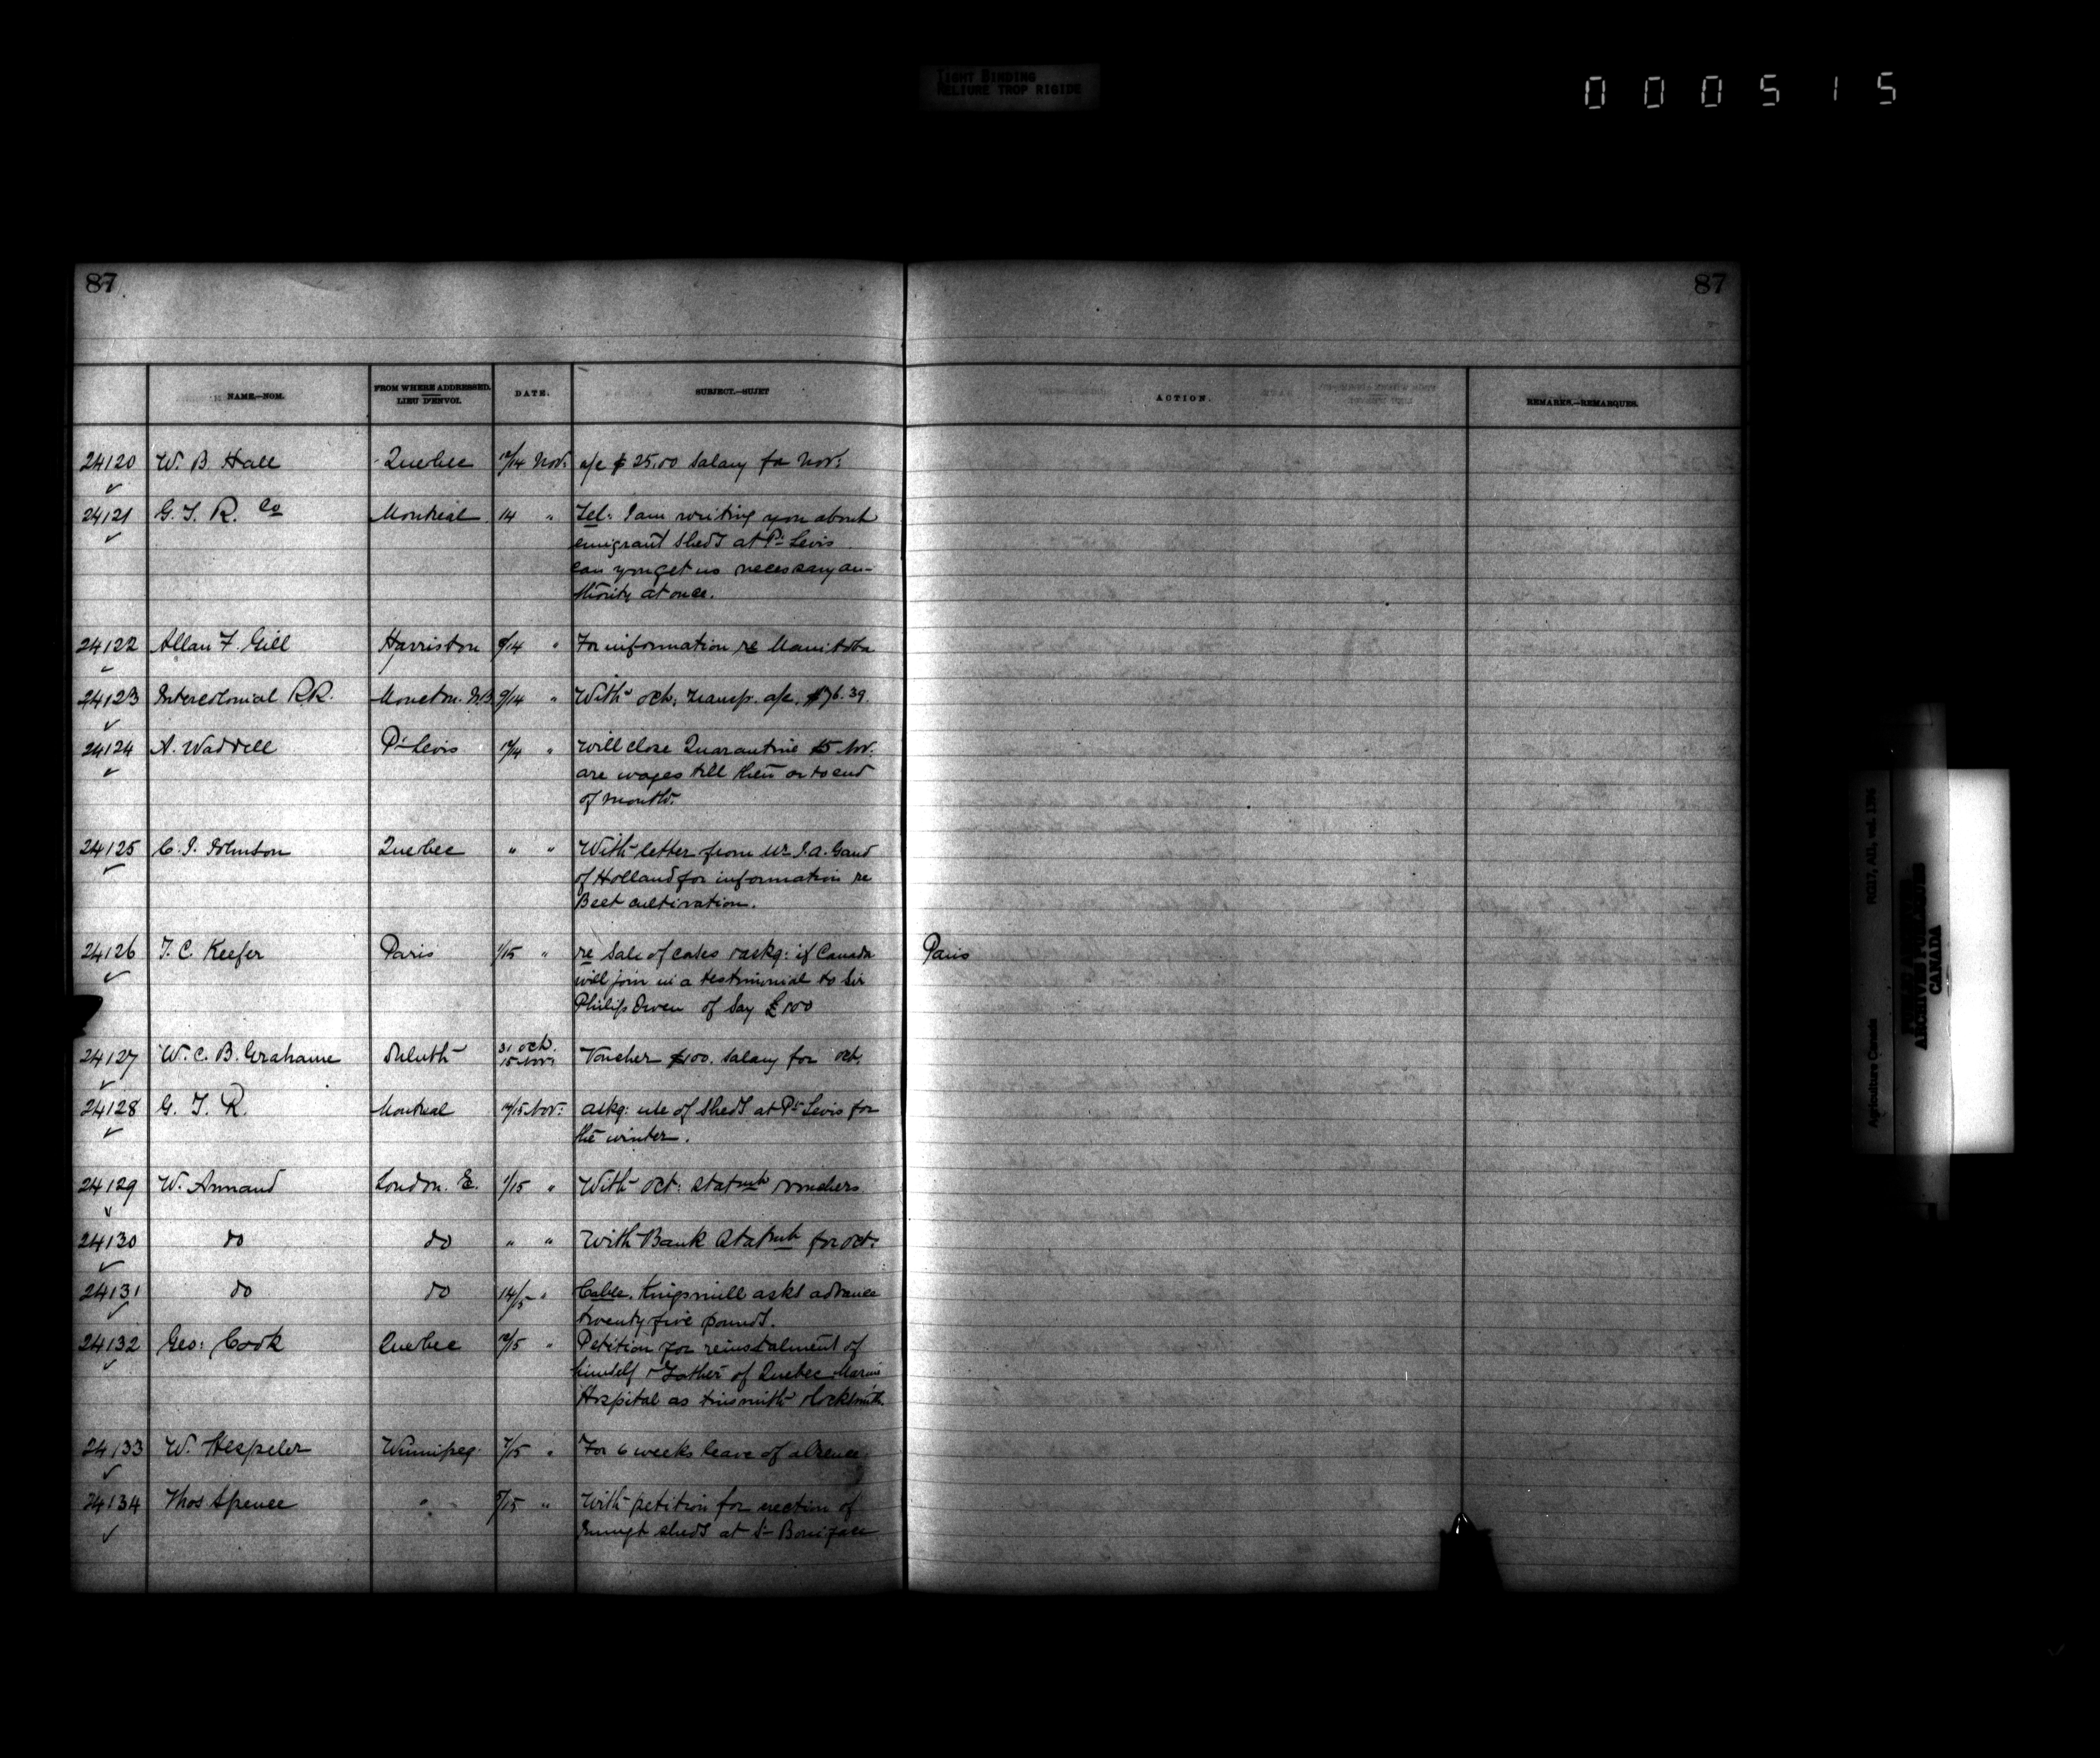 TIGHT BINDING
RELIURE TROP RIGIDE
000515
87 87
NAME.—NOM. FROM WHERE ADDRESSED. LIEU D'ENVOI. DATE. SUBJECT.—SUJET ACTION. REMARKS.—REMARQUES.
24120 W. B Hall Quebec 12/14 Nov: a/c $25.00 Salary for Nov:
24121 G. T. R. Co Montreal 14 " Tel: I am writing you about
emigrant sheds at Pt Levis
can you get us necessary au-
thority at once.
24122 Allan F. Gill Harriston 8/14 " For information re Manitoba
24123 Intercolonial RR. Moncton. N.B. 9/14 " With Oct: transp. a/c. $76.39.
24124 A. Waddell Pt Levis 12/14 " Will close Quarantine 15 Nov.
are wages till then or to end
of month.
24125 C. I. Johnson Quebec " " With letter from Mr J. A. Gand
of Holland for information re
Beet cultivation.
24126 T. C. Keefer Paris 1/15 " re Sale of cases & askg: if Canada Paris
will join in a testimonial to Sir
Philip Owen of Say £100
24127 W. C. B. Grahame Duluth 31 Oct.
15 Nov: Voucher $100. Salary for Oct.
24128 G. T. R. Montreal 14/15 Nov: askg: use of Sheds at Pt Levis for
the winter.
24129 W. Annand London. E. 1/15 " With Oct: Statmt & vouchers
24130 do do " " With Bank Statmt for Oct:
24131 do do 14/15 " Cable. Kingsmill asks advance
twenty five pounds.
24132 Geo: Cook Quebec 12/15 " Petition for reinstalment of
himself & Father of Quebec Marine
Hospital as tinsmith & locksmith
24133 W. Hespeler Winnipeg. 7/15 " For 6 weeks leave of absence
24134 Thos Spence " 5/15 " With petition for erection of
Immgt sheds at St Boniface
Agriculture Canada RG17, AII, vol. 1396
PUBLIC ARCHIVES
ARCHIVES PUBLIQUES
CANADA